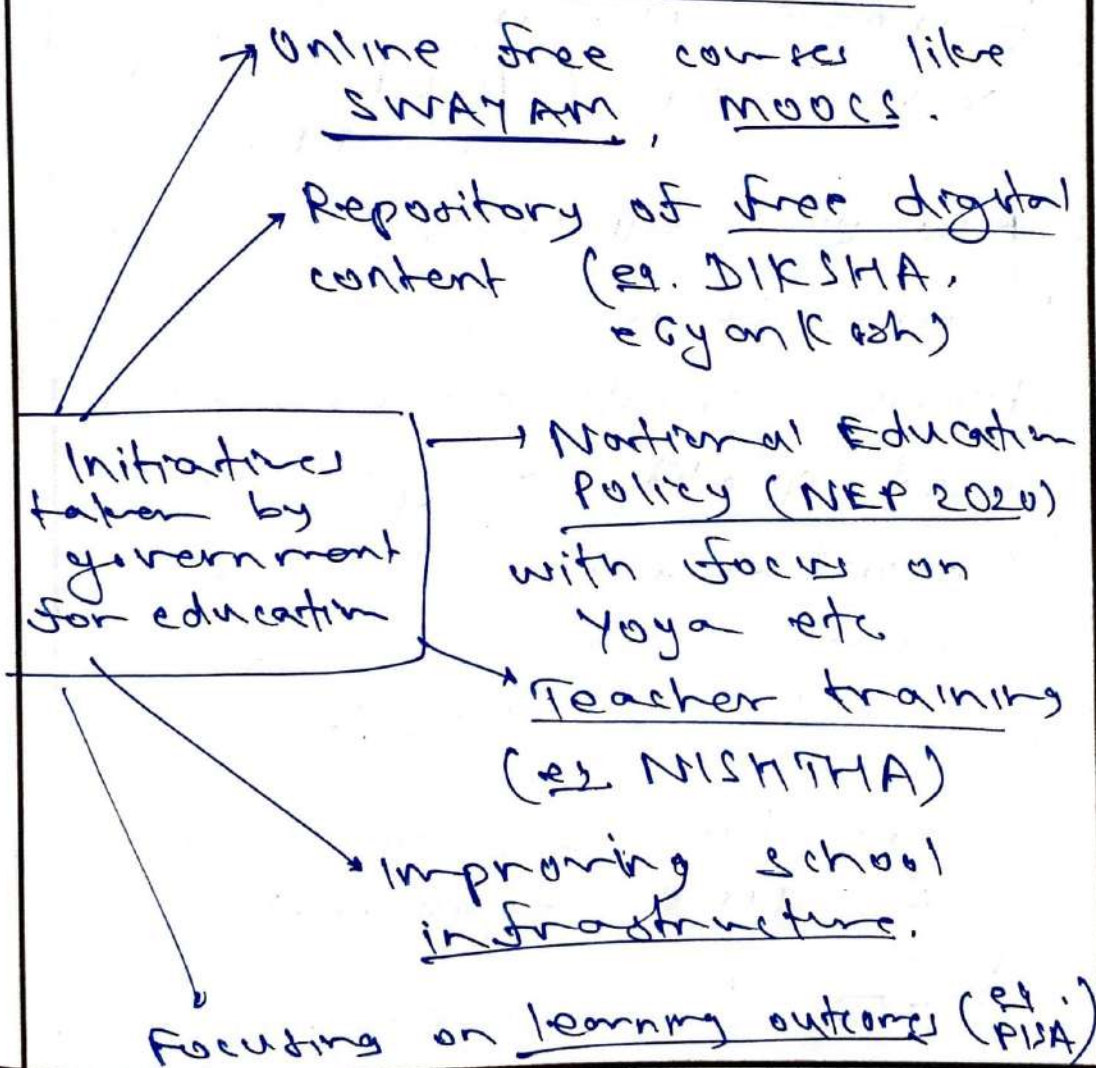 Online free courses like
SWAYAM, MOOCS.
Repository of free digital
content (eg. DIKSHA,
eGyanKosh)
Initiatives
taken by
government
for education
National Education
Policy (NEP 2020)
with focus on
Yoga etc
Teacher training
(eg. NISHTHA)
Improving school
infrastructure.
Focusing on learning outcomes (eg. PISA)